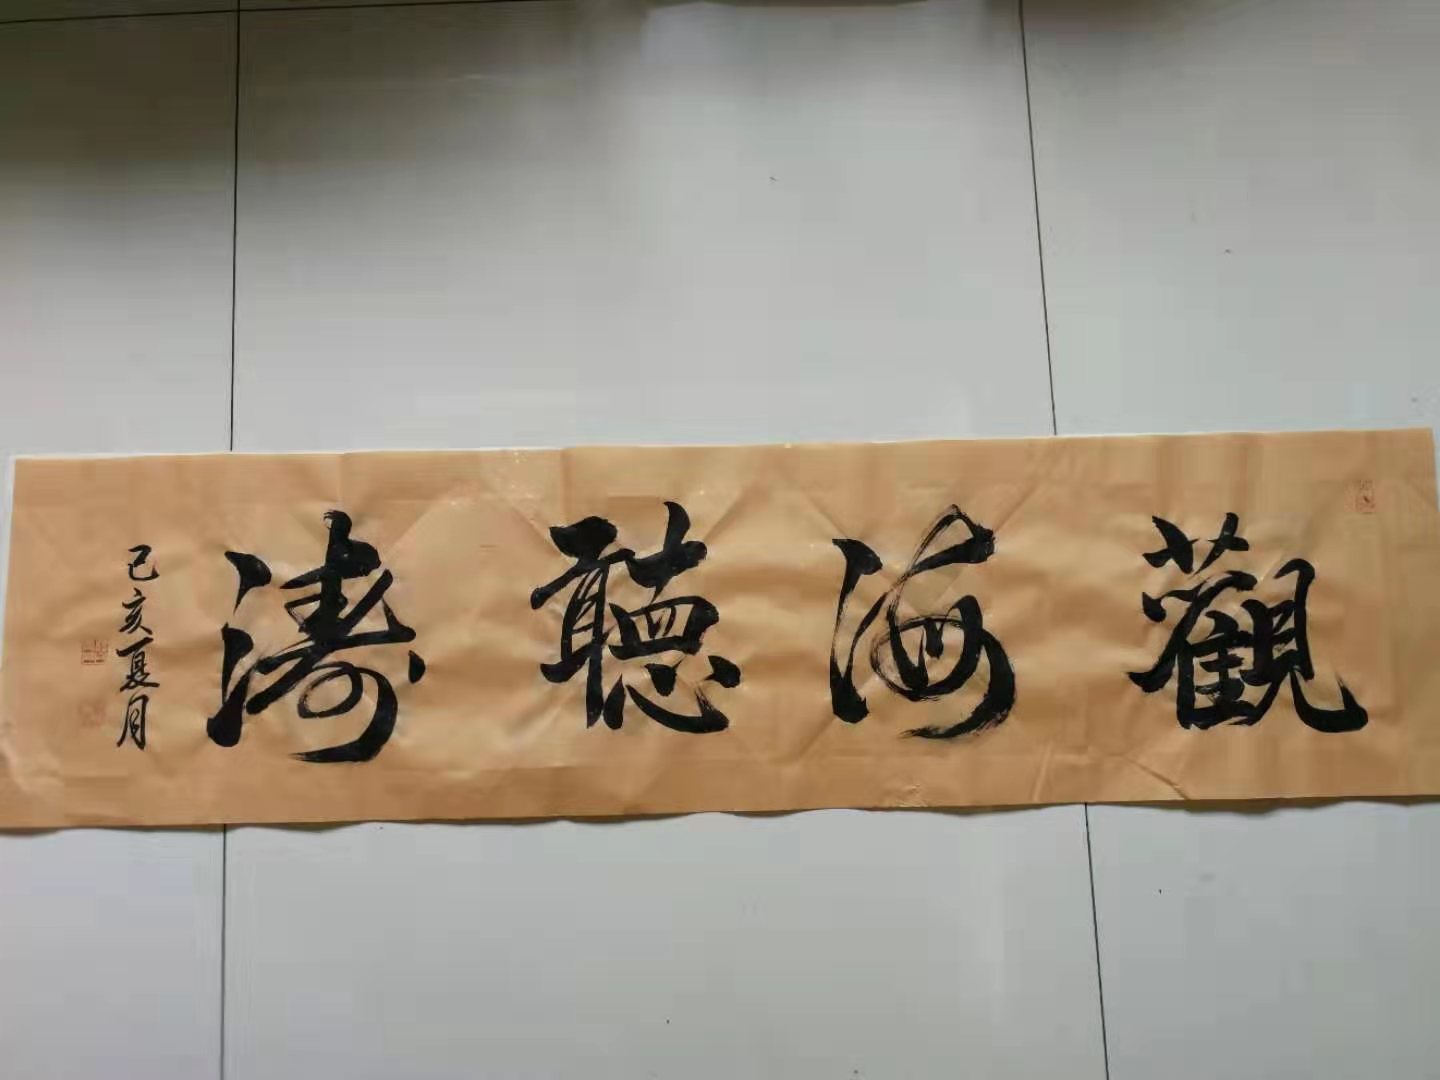 觀海聽濤
己亥夏月